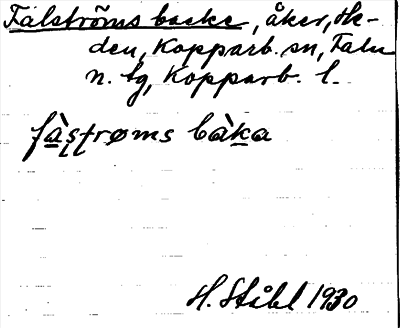 Falströms backe, åker, St-
den, Kopparb. sn, Falu
n. tg, Kopparb. l.
fàʂʈrøms bàka
H. Ståhl 1930